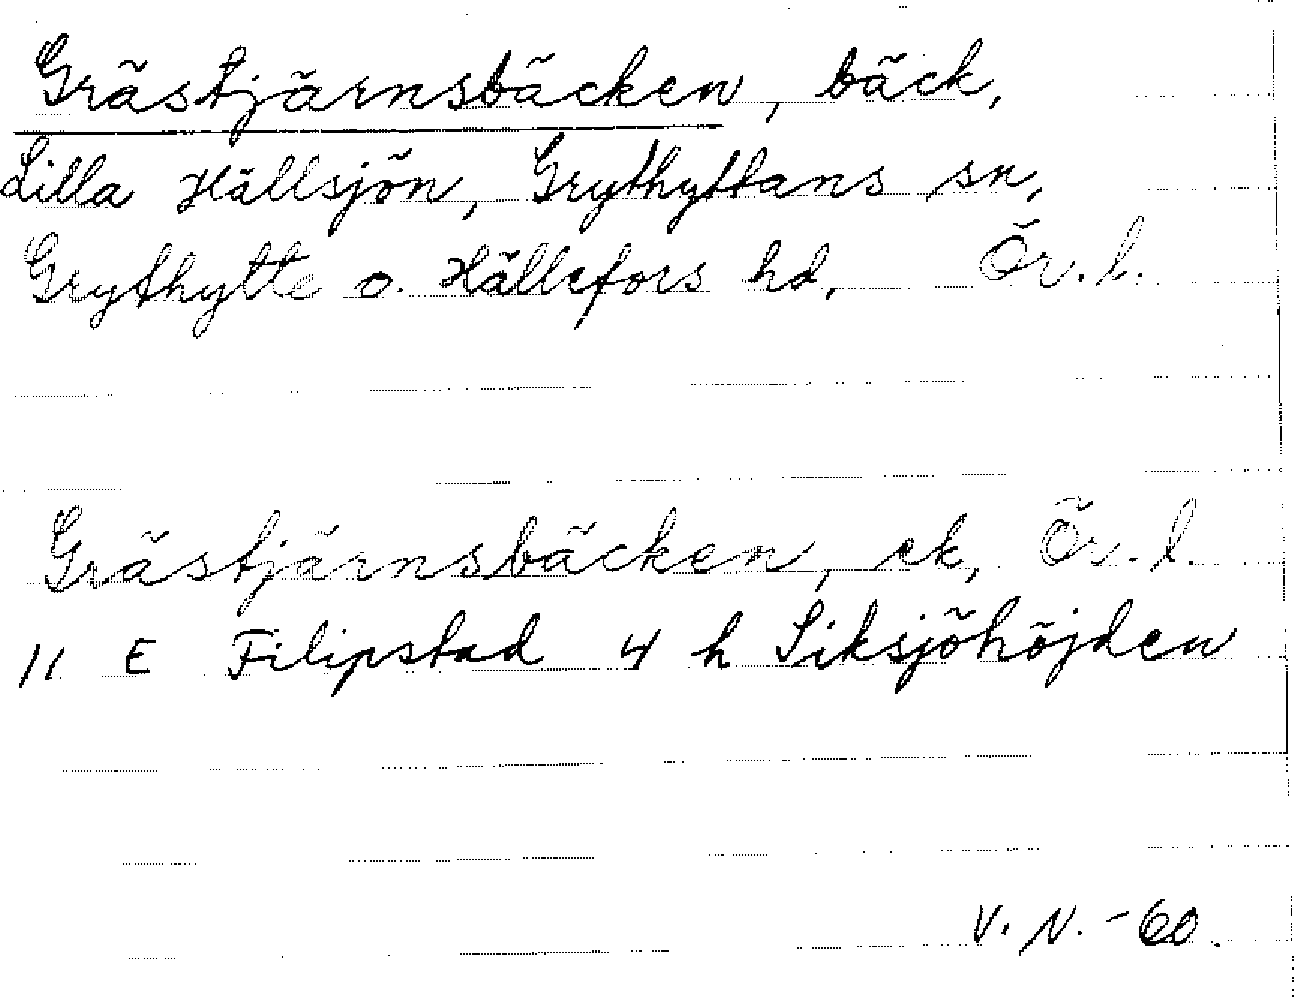 Grästjärnsbäcken, bäck,
Lilla Hällsjön, Grythyttans sn,
Grythytte o. Hällefors hd, Ör. l.
Grästjärnsbäcken, ek, Ör. l.
11 E Filipstad 4 h Siksjöhöjden
V. N. -60.